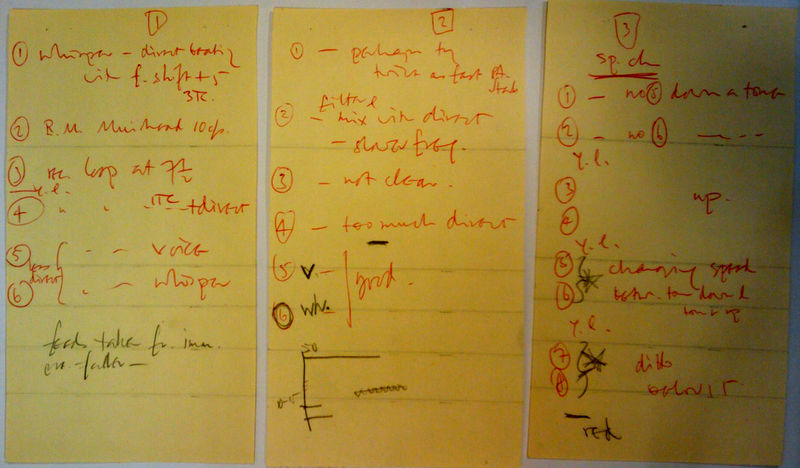 1
① whisper – direct beating
with f. shift + 5
② B.M. Muirhead 10 cps.
③ rec. loop at 7½
y.l.
④ " " + direct
⑤ less direct " " voice
⑥ " " whisper
feeds taken fr.
2
① – perhaps try
twice as fast
② – filter
mix with direct
– slower freq.
③ – not clear.
④ – too much direct
⑤ V. – good.
⑥ wh.
50
3
sp. ch
① – no ⑤ down a tone
② – no ⑥ – – –
y.l.
③ up.
④
y.l.
⑤ changing speed
⑥ betw. tone down &
tone up
y.l.
⑦ ditto
⑧
red